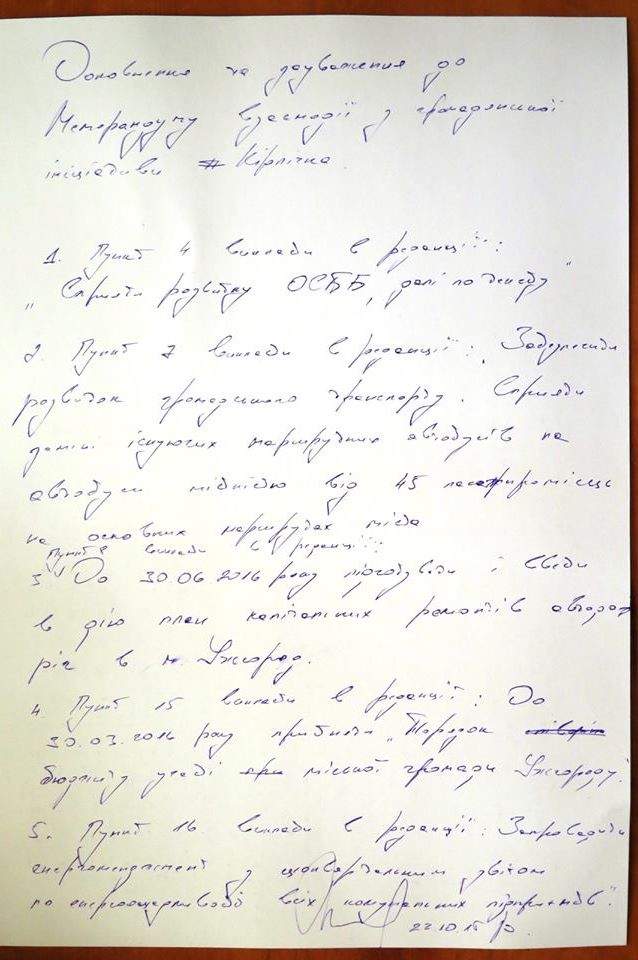 Доповнення та зауваження до
Меморандуму взаємодії з громадянської
ініціативи #Кірпічка.
1. Пункт 4 викласти в редакції:
"Сприяти розвитку ОСББ, далі по тексту"
2. Пункт 7 викласти в редакції: Забезпечити
розвиток громадського транспорту. Сприяти
заміні існуючих маршрутних автобусів на
автобуси місткістю від 45 пасажиромісць
на основних маршрутах міста
Пункт 8 викласти в редакції:
3. До 30.06.2016 року підготувати і ввести
в дію план капітальних ремонтів автодо
ріг в м. Ужгород.
4. Пункт 15 викласти в редакції: До
30.03.2016 року прийняти "Порядок
участі міської громади Ужгороду"
5. Пункт 16 викласти в редакції: Запровадити
енергоменеджмент з щоквартальним звітом
по всіх комунальних підприємств".
22.10.15 р.